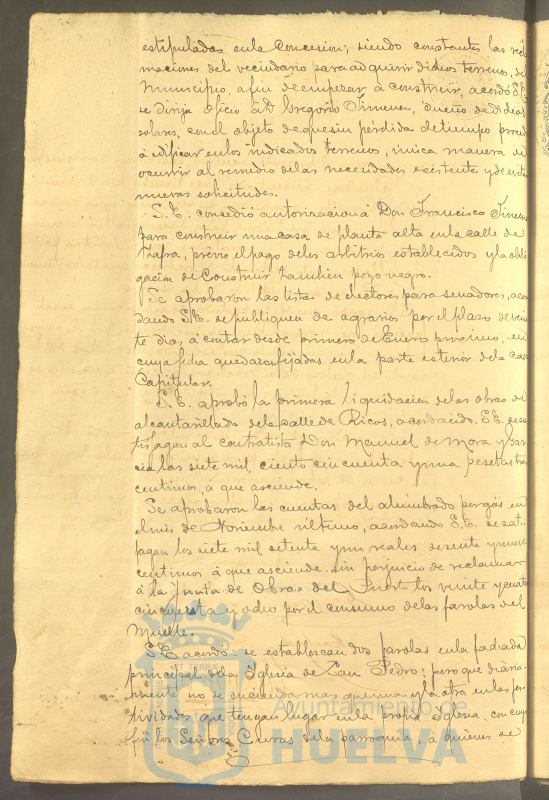 estipuladas en la Concesion; siendo constantes las recla
maciones del vecindario para adquirir dichos terrenos, del
Municipio, a fin de empezar á construir, acordó S.E.
se dirija oficio á D. Gregorio Jimenez, dueño de dichos
solares, con el objeto de que sin pérdida de tiempo proceda
á edificar en los indicados terrenos, única manera de
ocurrir al remedio de las necesidades existentes y de evitar
nuevas solicitudes.
S.E. concedió autorizacion á Don Francisco Jimenez
para construir una casa de planta alta en la calle de
Zafra, prévio el pago de los arbitrios establecidos y la obli
gacion de Construir tambien pozo negro.
Se aprobaron las listas de electores para senadores, acor
dando S.E. se publiquen de agrarios por el plazo de vein
te dias, á contar desde primero de Enero proximo, en
cuya fecha quedaran fijadas en la parte exterior de la casa
Capitular.
S.E. aprobó la primera liquidacion de las obras de
alcantarillado de la calle de Ricos, acordando S.E. se sa
tisfagan al contratista Don Manuel de Mora y Gar
cia las siete mil ciento cincuenta y una pesetas tres
centimos, á que asciende.
Se aprobaron las cuentas del alumbrado por gas en
el mes de Noviembre último, acordando S.E. se satis
fagan los siete mil setenta y un reales veinte y nueve
centimos á que asciende sin perjuicio de reclamar
á la Junta de Obras del Puerto los veinte y cuatro
cincuenta y ocho por el consumo de las farolas del
Muelle.
S.E. acordó: se establezcan dos farolas en la fachada
principal de la Iglesia de San Pedro; pero que diaria
mente no se encienda mas que una y la otra en las fes
tividades que tengan lugar en la propia Iglesia, con cuyo
fin los Señores Curas de la parroquia, á quienes se
Ayuntamiento de
HUELVA